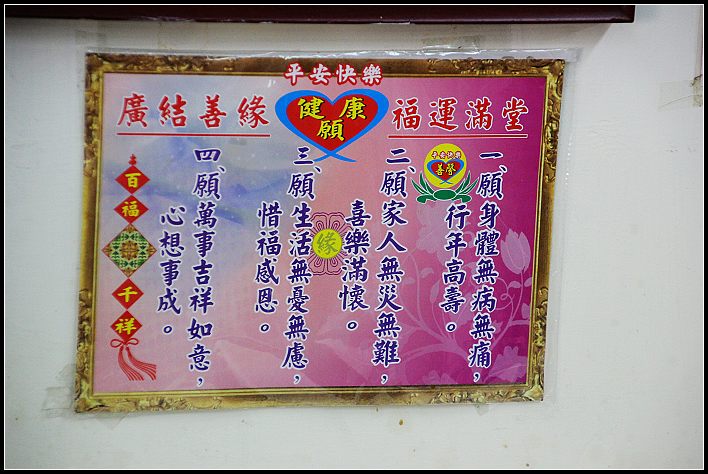 平安快樂
廣結善緣
健康
願
福運滿堂
平安快樂
善馨
一、願身體無病無痛,
行年高壽。
二、願家人無災無難,
喜樂滿懷。
緣
三、願生活無憂無慮,
惜福感恩。
四、願萬事吉祥如意,
心想事成。
百福
千祥